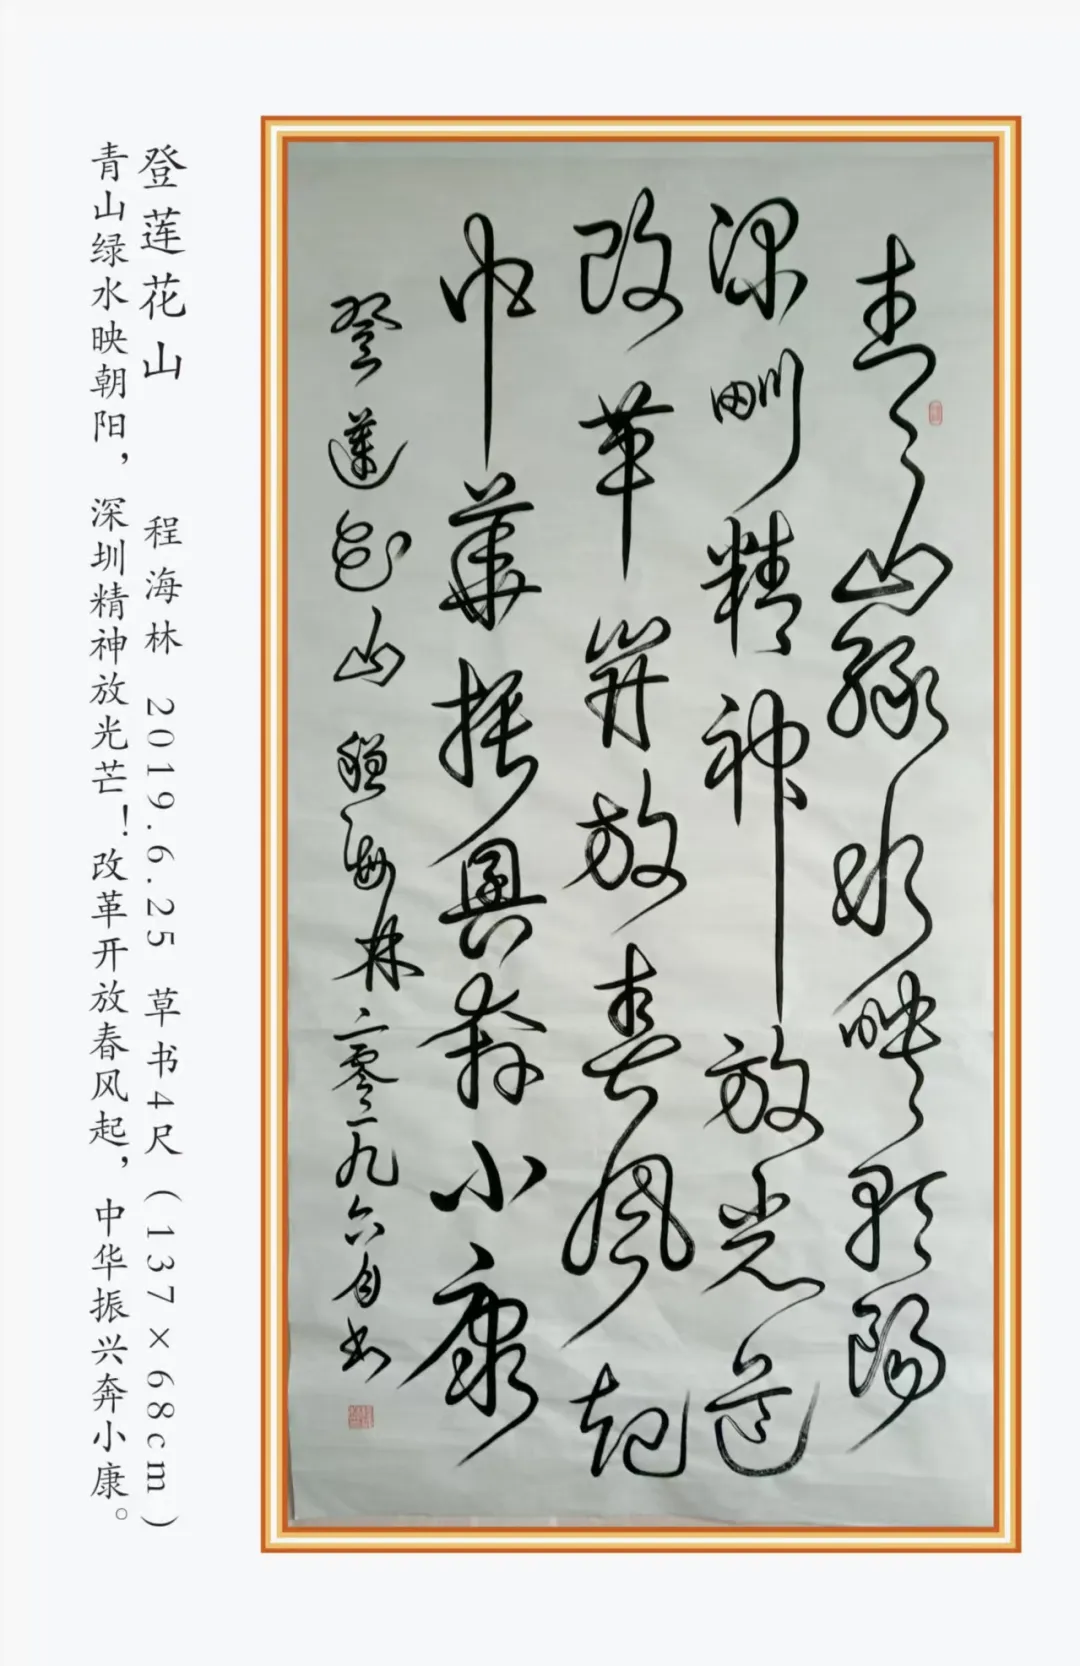 青山綠水映朝陽
深圳精神放光芒
改革開放春风起
中華振興奔小康
登蓮花山 程海林 二零一九六月书
登莲花山 程海林 2019.6.25 草书4尺(137×68cm)
青山绿水映朝阳，深圳精神放光芒！改革开放春风起，中华振兴奔小康。